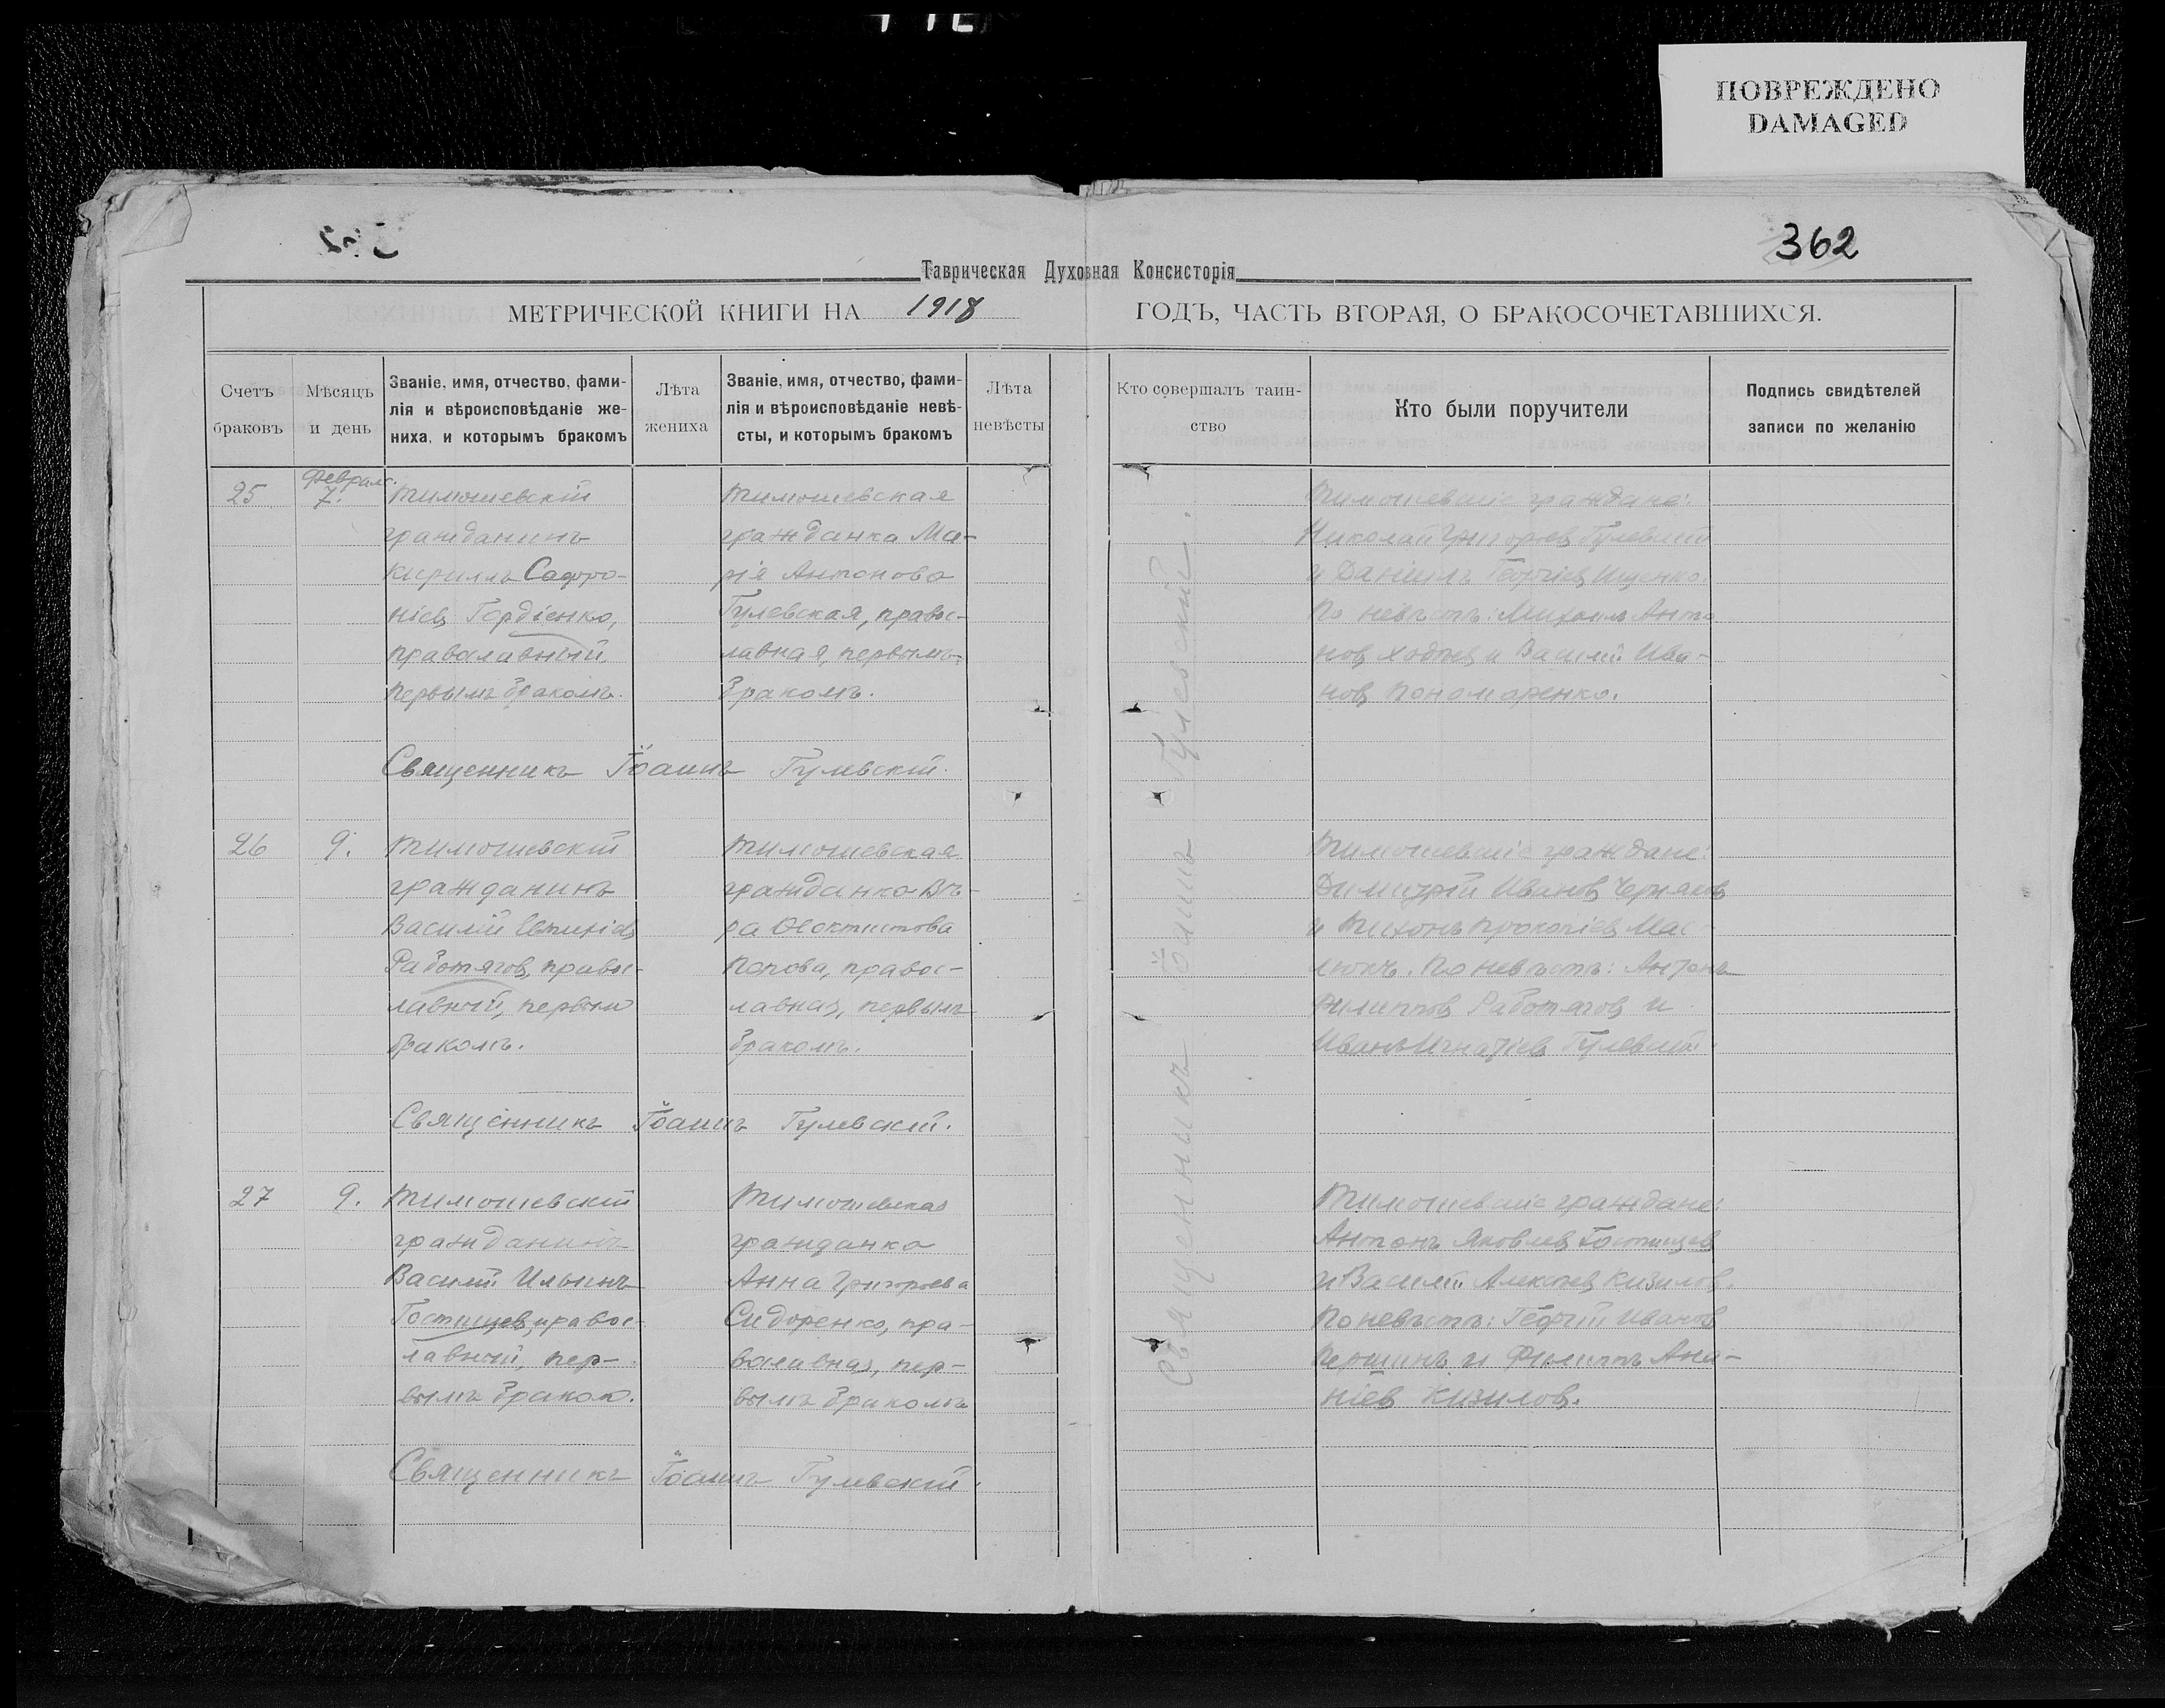 ПОВРЕЖДЕНО
DAMAGED
362
Таврическая Духовная Консисторія
МЕТРИЧЕСКОЙ КНИГИ НА 1918 ГОДЪ, ЧАСТЬ ВТОРАЯ, О БРАКОСОЧЕТАВШИХСЯ.
Счетъ
браковъ
Мѣсяцъ
и день
Званіе, имя, отчество, фами-
лія и вѣроисповѣданіе же-
ниха, и которымъ бракомъ
Лѣта
жениха
Званіе, имя, отчество, фами-
лія и вѣроисповѣданіе невѣ-
сты, и которымъ бракомъ
Лѣта
невѣсты
Кто совершалъ таин-
ство
Кто были поручители
Подпись свидѣтелей
записи по желанію
25
7.
Тимошевскій
гражданинъ
Кириллъ Софро-
ніев Гордіенко,
православный,
первымъ бракомъ.
Тимошевская
гражданка Ма-
рія Антонова
Гулевская, правос-
лавная, первымъ
бракомъ.
Тимошевскіе граждане:
Николай Григорьев Гулевскій
и Даніилъ Георгіев Ищенко.
По невѣстѣ: Михаилъ Анто
нов и Василій Ива-
нов Пономаренко.
Священникъ Іоаннъ Гулевскій.
26
9.
Тимошевскій
гражданинъ
Василій Евтихіев
Работягов, правос-
лавный, первым
бракомъ.
Тимошевская
гражданка Вѣ-
ра Ѳеоктистова
Попова, правос-
лавная, первымъ
бракомъ.
Тимошевскіе граждане:
Димитрій Иванов Черняков
и Тихонъ Прокопіев Мас-
люкъ. По невѣстѣ: Антонъ
Филиппов Работягов и
Иванъ Игнатіев Гулевскій.
Священникъ Іоаннъ Гулевскій.
27
9.
Тимошевскій
гражданинъ
Василій Ильинъ
Гостищев, правос-
лавный, пер-
вымъ браком.
Тимошевская
гражданка
Анна Григорьева
Сидоренко, пра-
вославная, пер-
вымъ бракомъ
Тимошевскіе граждане:
Антонъ Яковлев Гостищев
и Василій Алексѣев Кизилов.
По невѣстѣ: Георгій Иванов
Першинъ и Филиппъ Ана-
ніев Кизилов.
Священникъ Іоаннъ Гулевскій.
Священникъ Іоаннъ Гулевскій.